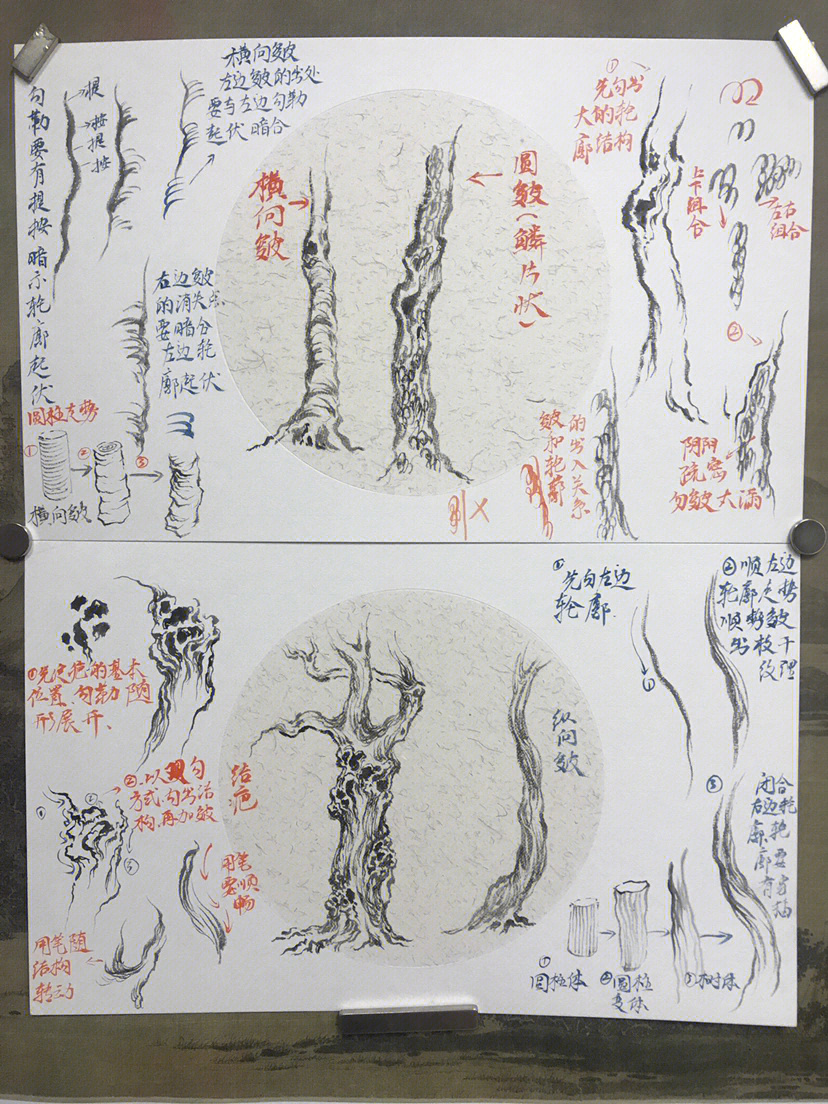 勾勒要有提按暗示轮廓起伏
提
按
提
按
横向皴
左边皴的出处
要与左边勾勒
起伏暗合
横向皴
圆皴(鳞片状)
①
先勾出
大的轮
廓结构
上下组合
左右
组合
②
右边皴
的消失点
要暗合
左边轮
廓起伏
圆柱之势
①
②
③
横向皴
皴和轮廓
的出入关系
阴阳
疏密
勿皴太满
①先定疤的基本
位置、勾勒随
形展开、
②以双勾
方式勾出结
构,再加皴
结疤
用笔
要顺
畅
用笔随
结构
转动
纵向皴
①先勾左边
轮廓.
①
②顺左边
轮廓之势
顺势皴
出枝干
纹理
③
闭合
右边轮
廓,轮
廓要
有穿插
①
圆柱体
②圆柱
变体
③树体